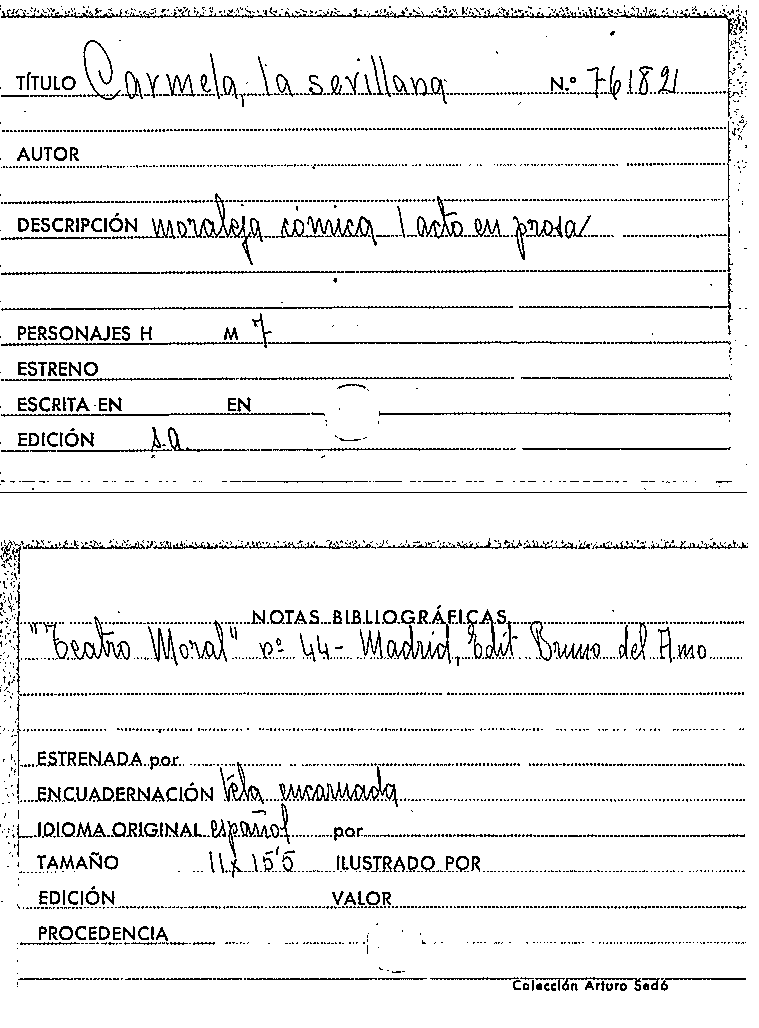 TÍTULO Carmela, la sevillana N.º 761821
AUTOR
DESCRIPCIÓN moraleja cómica 1 acto en prosa
PERSONAJES H M 7
ESTRENO
ESCRITA EN EN
EDICIÓN s.a.
NOTAS BIBLIOGRÁFICAS
"Teatro Moral" nº 44- Madrid, Edit Bruno del Amo
ESTRENADA por
ENCUADERNACIÓN tela encarnada
IDIOMA ORIGINAL español por
TAMAÑO 11x15'5 ILUSTRADO POR
EDICIÓN VALOR
PROCEDENCIA
Colección Arturo Sedó